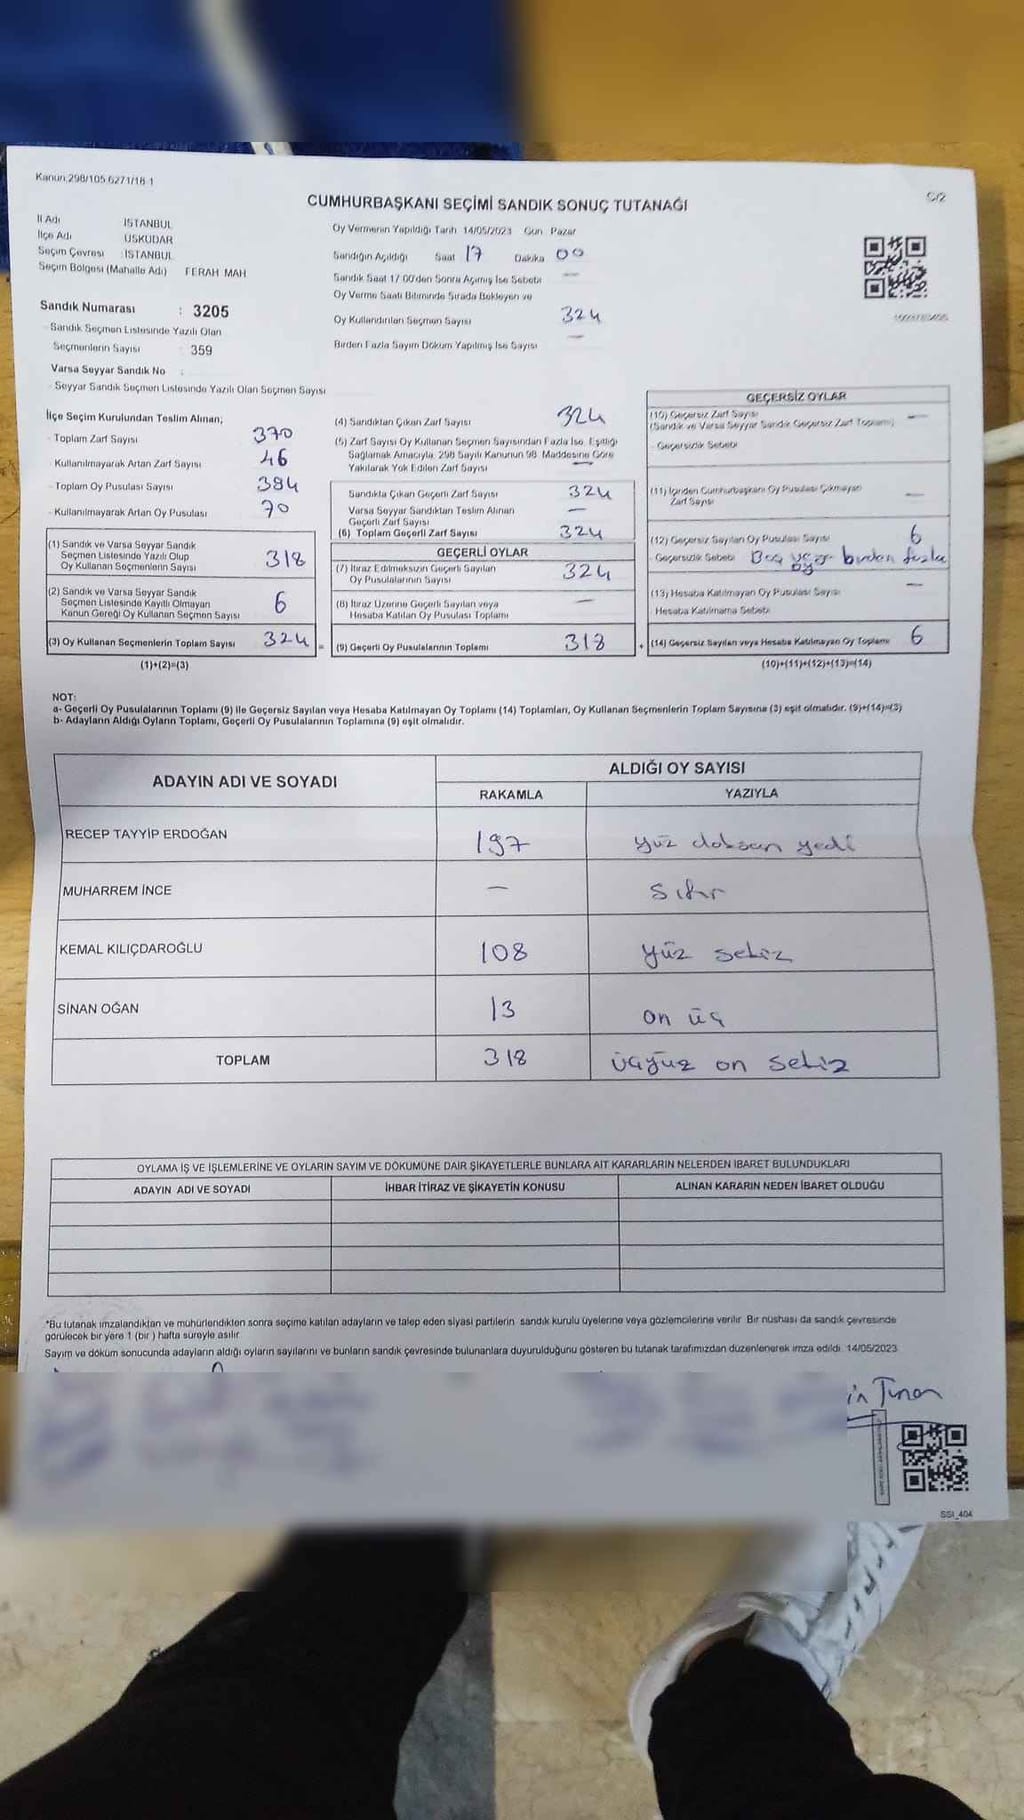 Kanun:298/105 6271/18-1
C/2
CUMHURBAŞKANI SEÇİMİ SANDIK SONUÇ TUTANAĞI
İl Adı İSTANBUL
İlçe Adı ÜSKÜDAR
Seçim Çevresi :İSTANBUL
Seçim Bölgesi (Mahalle Adı) FERAH MAH
Sandık Numarası : 3205
- Sandık Seçmen Listesinde Yazılı Olan
Seçmenlerin Sayısı : 359
Varsa Seyyar Sandık No :
- Seyyar Sandık Seçmen Listesinde Yazılı Olan Seçmen Sayısı
Oy Vermenin Yapıldığı Tarih 14/05/2023 Gün Pazar
Sandığın Açıldığı Saat 17 Dakika 00
Sandık Saat 17:00'den Sonra Açılmış İse Sebebi —
Oy Verme Saati Bitiminde Sırada Bekleyen ve
Oy Kullandırılan Seçmen Sayısı 324
Birden Fazla Sayım Döküm Yapılmış İse Sayısı —
İlçe Seçim Kurulundan Teslim Alınan;
- Toplam Zarf Sayısı 370
- Kullanılmayarak Artan Zarf Sayısı 46
- Toplam Oy Pusulası Sayısı 394
- Kullanılmayarak Artan Oy Pusulası 70
(1) Sandık ve Varsa Seyyar Sandık
Seçmen Listesinde Yazılı Olup
Oy Kullanan Seçmenlerin Sayısı 318
(2) Sandık ve Varsa Seyyar Sandık
Seçmen Listesinde Kayıtlı Olmayan
Kanun Gereği Oy Kullanan Seçmen Sayısı 6
(3) Oy Kullanan Seçmenlerin Toplam Sayısı 324 =
(1)+(2)=(3)
(4) Sandıktan Çıkan Zarf Sayısı 324
(5) Zarf Sayısı Oy Kullanan Seçmen Sayısından Fazla İse, Eşitliği
Sağlamak Amacıyla, 298 Sayılı Kanunun 98. Maddesine Göre
Yakılarak Yok Edilen Zarf Sayısı —
Sandıkta Çıkan Geçerli Zarf Sayısı 324
Varsa Seyyar Sandıktan Teslim Alınan
Geçerli Zarf Sayısı —
(6) Toplam Geçerli Zarf Sayısı 324
GEÇERLİ OYLAR
(7) İtiraz Edilmeksizin Geçerli Sayılan
Oy Pusulalarının Sayısı 324
(8) İtiraz Üzerine Geçerli Sayılan veya
Hesaba Katılan Oy Pusulası Toplamı —
(9) Geçerli Oy Pusulalarının Toplamı 318 +
GEÇERSİZ OYLAR
(10) Geçersiz Zarf Sayısı —
(Sandık ve Varsa Seyyar Sandık Geçersiz Zarf Toplamı)
- Geçersizlik Sebebi
(11) İçinden Cumhurbaşkanı Oy Pusulası Çıkmayan
Zarf Sayısı —
(12) Geçersiz Sayılan Oy Pusulası Sayısı 6
- Geçersizlik Sebebi Boş veya birden fazla
oy
(13) Hesaba Katılmayan Oy Pusulası Sayısı —
Hesaba Katılmama Sebebi
(14) Geçersiz Sayılan veya Hesaba Katılmayan Oy Toplamı 6
(10)+(11)+(12)+(13)=(14)
NOT:
a- Geçerli Oy Pusulalarının Toplamı (9) ile Geçersiz Sayılan veya Hesaba Katılmayan Oy Toplamı (14) Toplamları, Oy Kullanan Seçmenlerin Toplam Sayısına (3) eşit olmalıdır. (9)+(14)=(3)
b- Adayların Aldığı Oyların Toplamı, Geçerli Oy Pusulalarının Toplamına (9) eşit olmalıdır.
ADAYIN ADI VE SOYADI ALDIĞI OY SAYISI
RAKAMLA YAZIYLA
RECEP TAYYİP ERDOĞAN 197 yüz doksan yedi
MUHARREM İNCE — sıfır
KEMAL KILIÇDAROĞLU 108 yüz sekiz
SİNAN OĞAN 13 on üç
TOPLAM 318 üçyüz on sekiz
OYLAMA İŞ VE İŞLEMLERİNE VE OYLARIN SAYIM VE DÖKÜMÜNE DAİR ŞİKAYETLERLE BUNLARA AİT KARARLARIN NELERDEN İBARET BULUNDUKLARI
ADAYIN ADI VE SOYADI İHBAR İTİRAZ VE ŞİKAYETİN KONUSU ALINAN KARARIN NEDEN İBARET OLDUĞU
*Bu tutanak imzalandıktan ve mühürlendikten sonra seçime katılan adayların ve talep eden siyasi partilerin sandık kurulu üyelerine veya gözlemcilerine verilir. Bir nüshası da sandık çevresinde
görülecek bir yere 1 (bir) hafta süreyle asılır.
Sayım ve döküm sonucunda adayların aldığı oyların sayılarını ve bunların sandık çevresinde bulunanlara duyurulduğunu gösteren bu tutanak tarafımızdan düzenlenerek imza edildi. 14/05/2023
SSI_404